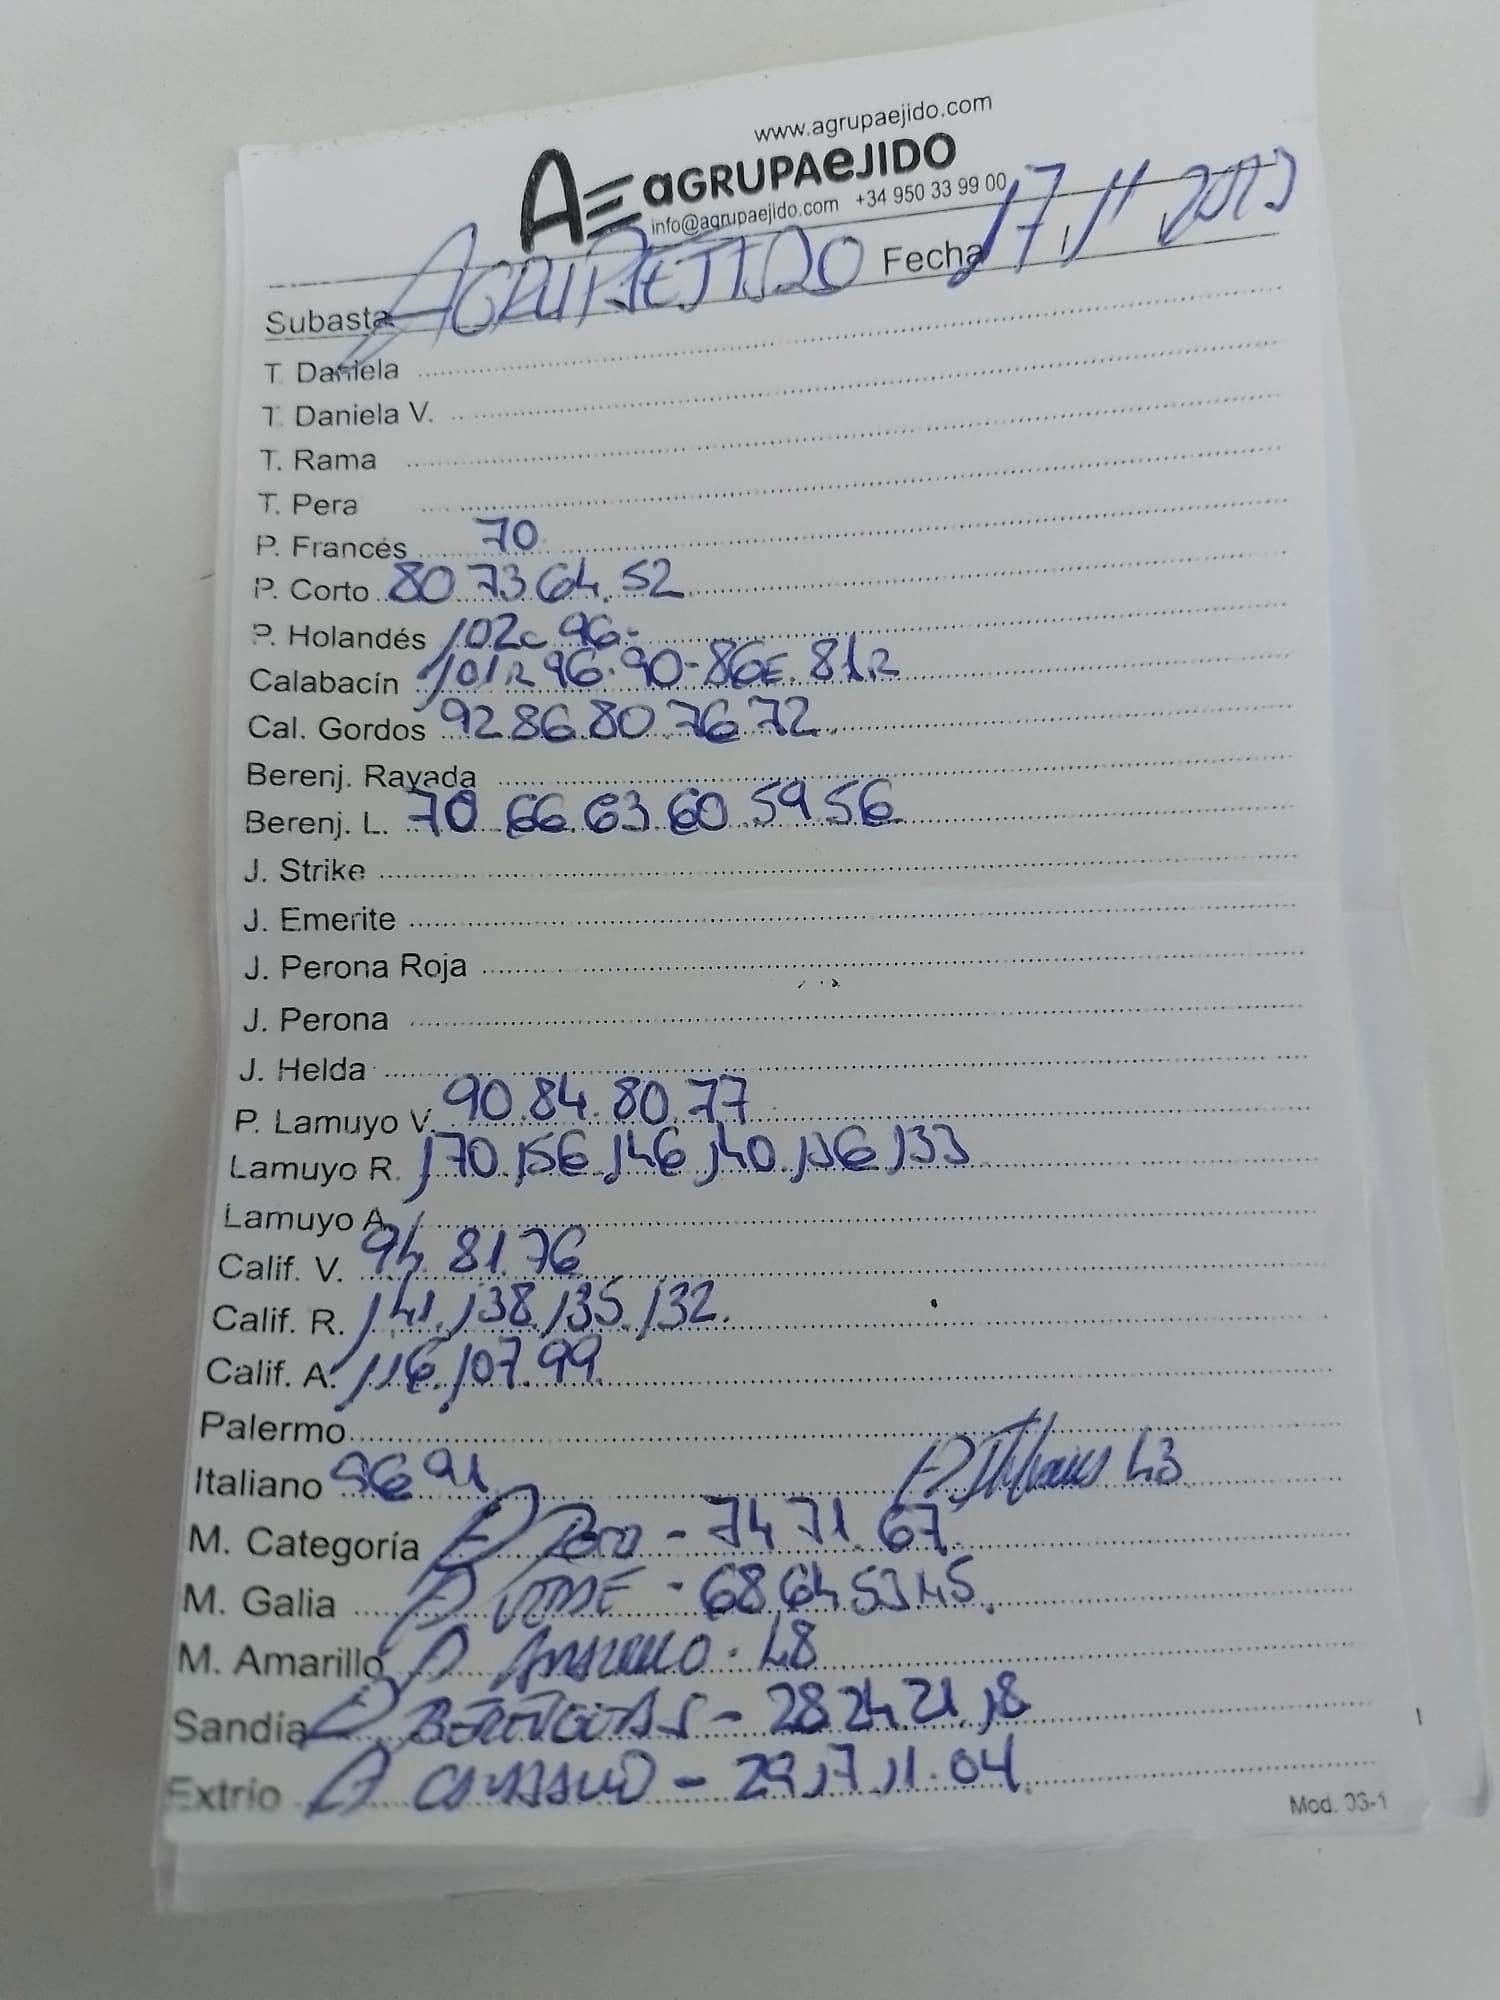 www.agrupaejido.com
AE aGRUPAeJIDO
info@agrupaejido.com +34 950 33 99 00
Subasta AGRUPAEJIDO Fecha 17 11
T. Daniela
T. Daniela V.
T. Rama
T. Pera
P. Francés 70
P. Corto 80 73 64. 52
P. Holandés 102c 96-
Calabacín 101R 96. 90-86E. 81R
Cal. Gordos 92 86 80 76 72
Berenj. Rayada
Berenj. L. 70 66. 63. 60. 59 56
J. Strike
J. Emerite
J. Perona Roja
J. Perona
J. Helda
P. Lamuyo V. 90. 84. 80. 77
Lamuyo R. 170. 156 146 140. 136 133
Lamuyo A.
Calif. V. 94. 81. 76
Calif. R. 141. 138. 135. 132.
Calif. A. 116. 107. 99
Palermo
Italiano 96 91 43
M. Categoría - 74 71. 67
M. Galia - 68 64 53 45.
M. Amarillo P Amarillo - 48
Sandía P BERENGENAS - 28 24 21 18
Extrio - 29 17 11. 04
Mod. 36-1